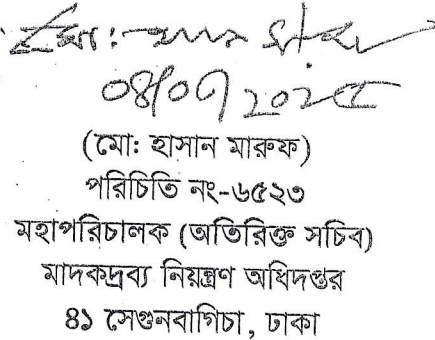 ০৪/০৭/২০২৫
(মো: হাসান মারুফ)
পরিচিতি নং-৬৫২৩
মহাপরিচালক (অতিরিক্ত সচিব)
মাদকদ্রব্য নিয়ন্ত্রণ অধিদপ্তর
৪১ সেগুনবাগিচা, ঢাকা